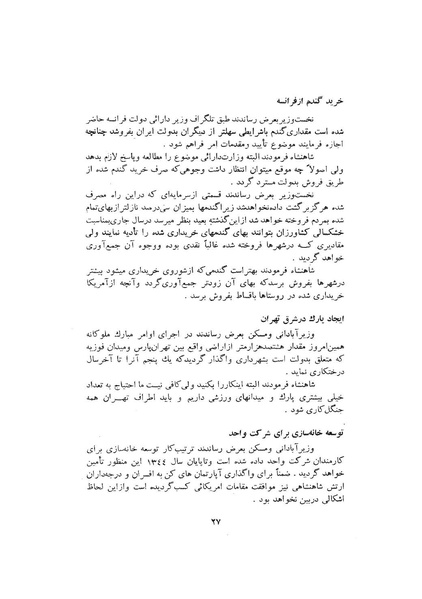 خرید گندم از فرانسه
نخست‌وزیر بعرض رساندند طبق تلگراف وزیر دارائی دولت فرانسه حاضر
شده است مقداری گندم باشرایطی سهلتر از دیگران بدولت ایران بفروشد چنانچه
اجازه فرمایند موضوع تأیید ومقدمات امر فراهم شود .
شاهنشاه فرمودند البته وزارت‌دارائی موضوع را مطالعه وپاسخ لازم بدهد
ولی اصولاً چه موقع میتوان انتظار داشت وجوهی‌که صرف خرید گندم شده از
طریق فروش بدولت مسترد گردد .
نخست‌وزیر بعرض رساندند قسمتی ازسرمایه‌ای که دراین راه مصرف
شده هرگز برگشت داده‌نخواهدشد زیرا گندمها بمیزان سی‌درصد نازلتر ازبهای‌تمام
شده بمردم فروخته خواهد شد ازاین‌گذشته بعید بنظر میرسد درسال جاری بمناسبت
خشکسالی کشاورزان بتوانند بهای گندمهای خریداری شده را تأدیه نمایند ولی
مقادیری کـــه درشهرها فروخته شده غالباً نقدی بوده ووجوه آن جمع‌آوری
خواهد گردید .
شاهنشاه فرمودند بهتراست گندمی‌که ازشوروی خریداری میشود بیشتر
درشهرها بفروش برسدکه بهای آن زودتر جمع‌آوری‌گردد وآنچه ازآمریکا
خریداری شده در روستاها باقساط بفروش برسد .
ایجاد پارك درشرق تهران
وزیرآبادانی ومسکن بعرض رساندند در اجرای اوامر مبارك ملوکانه
همین‌امروز مقدار هشتصدهزارمتر ازاراضی واقع بین تهران‌پارس ومیدان فوزیه
که متعلق بدولت است بشهرداری واگذار گردیدکه یك پنجم آنرا تا آخرسال
درختکاری نماید .
شاهنشاه فرمودند البته اینکاررا بکنید ولی‌کافی نیست ما احتیاج به تعداد
خیلی بیشتری پارك و میدانهای ورزشی داریم و باید اطراف تهــران همه
جنگل‌کاری شود .
توسعه خانه‌سازی برای شرکت واحد
وزیرآبادانی ومسکن بعرض رساندند ترتیب‌کار توسعه خانه‌سازی برای
کارمندان شرکت واحد داده شده است وتاپایان سال ۱۳۴۴ این منظور تأمین
خواهد گردید . ضمناً برای واگذاری آپارتمان های کن به افسران و درجه‌داران
ارتش شاهنشاهی نیز موافقت مقامات امریکائی کسب‌گردیده است وازاین لحاظ
اشکالی دربین نخواهد بود .
۲۷